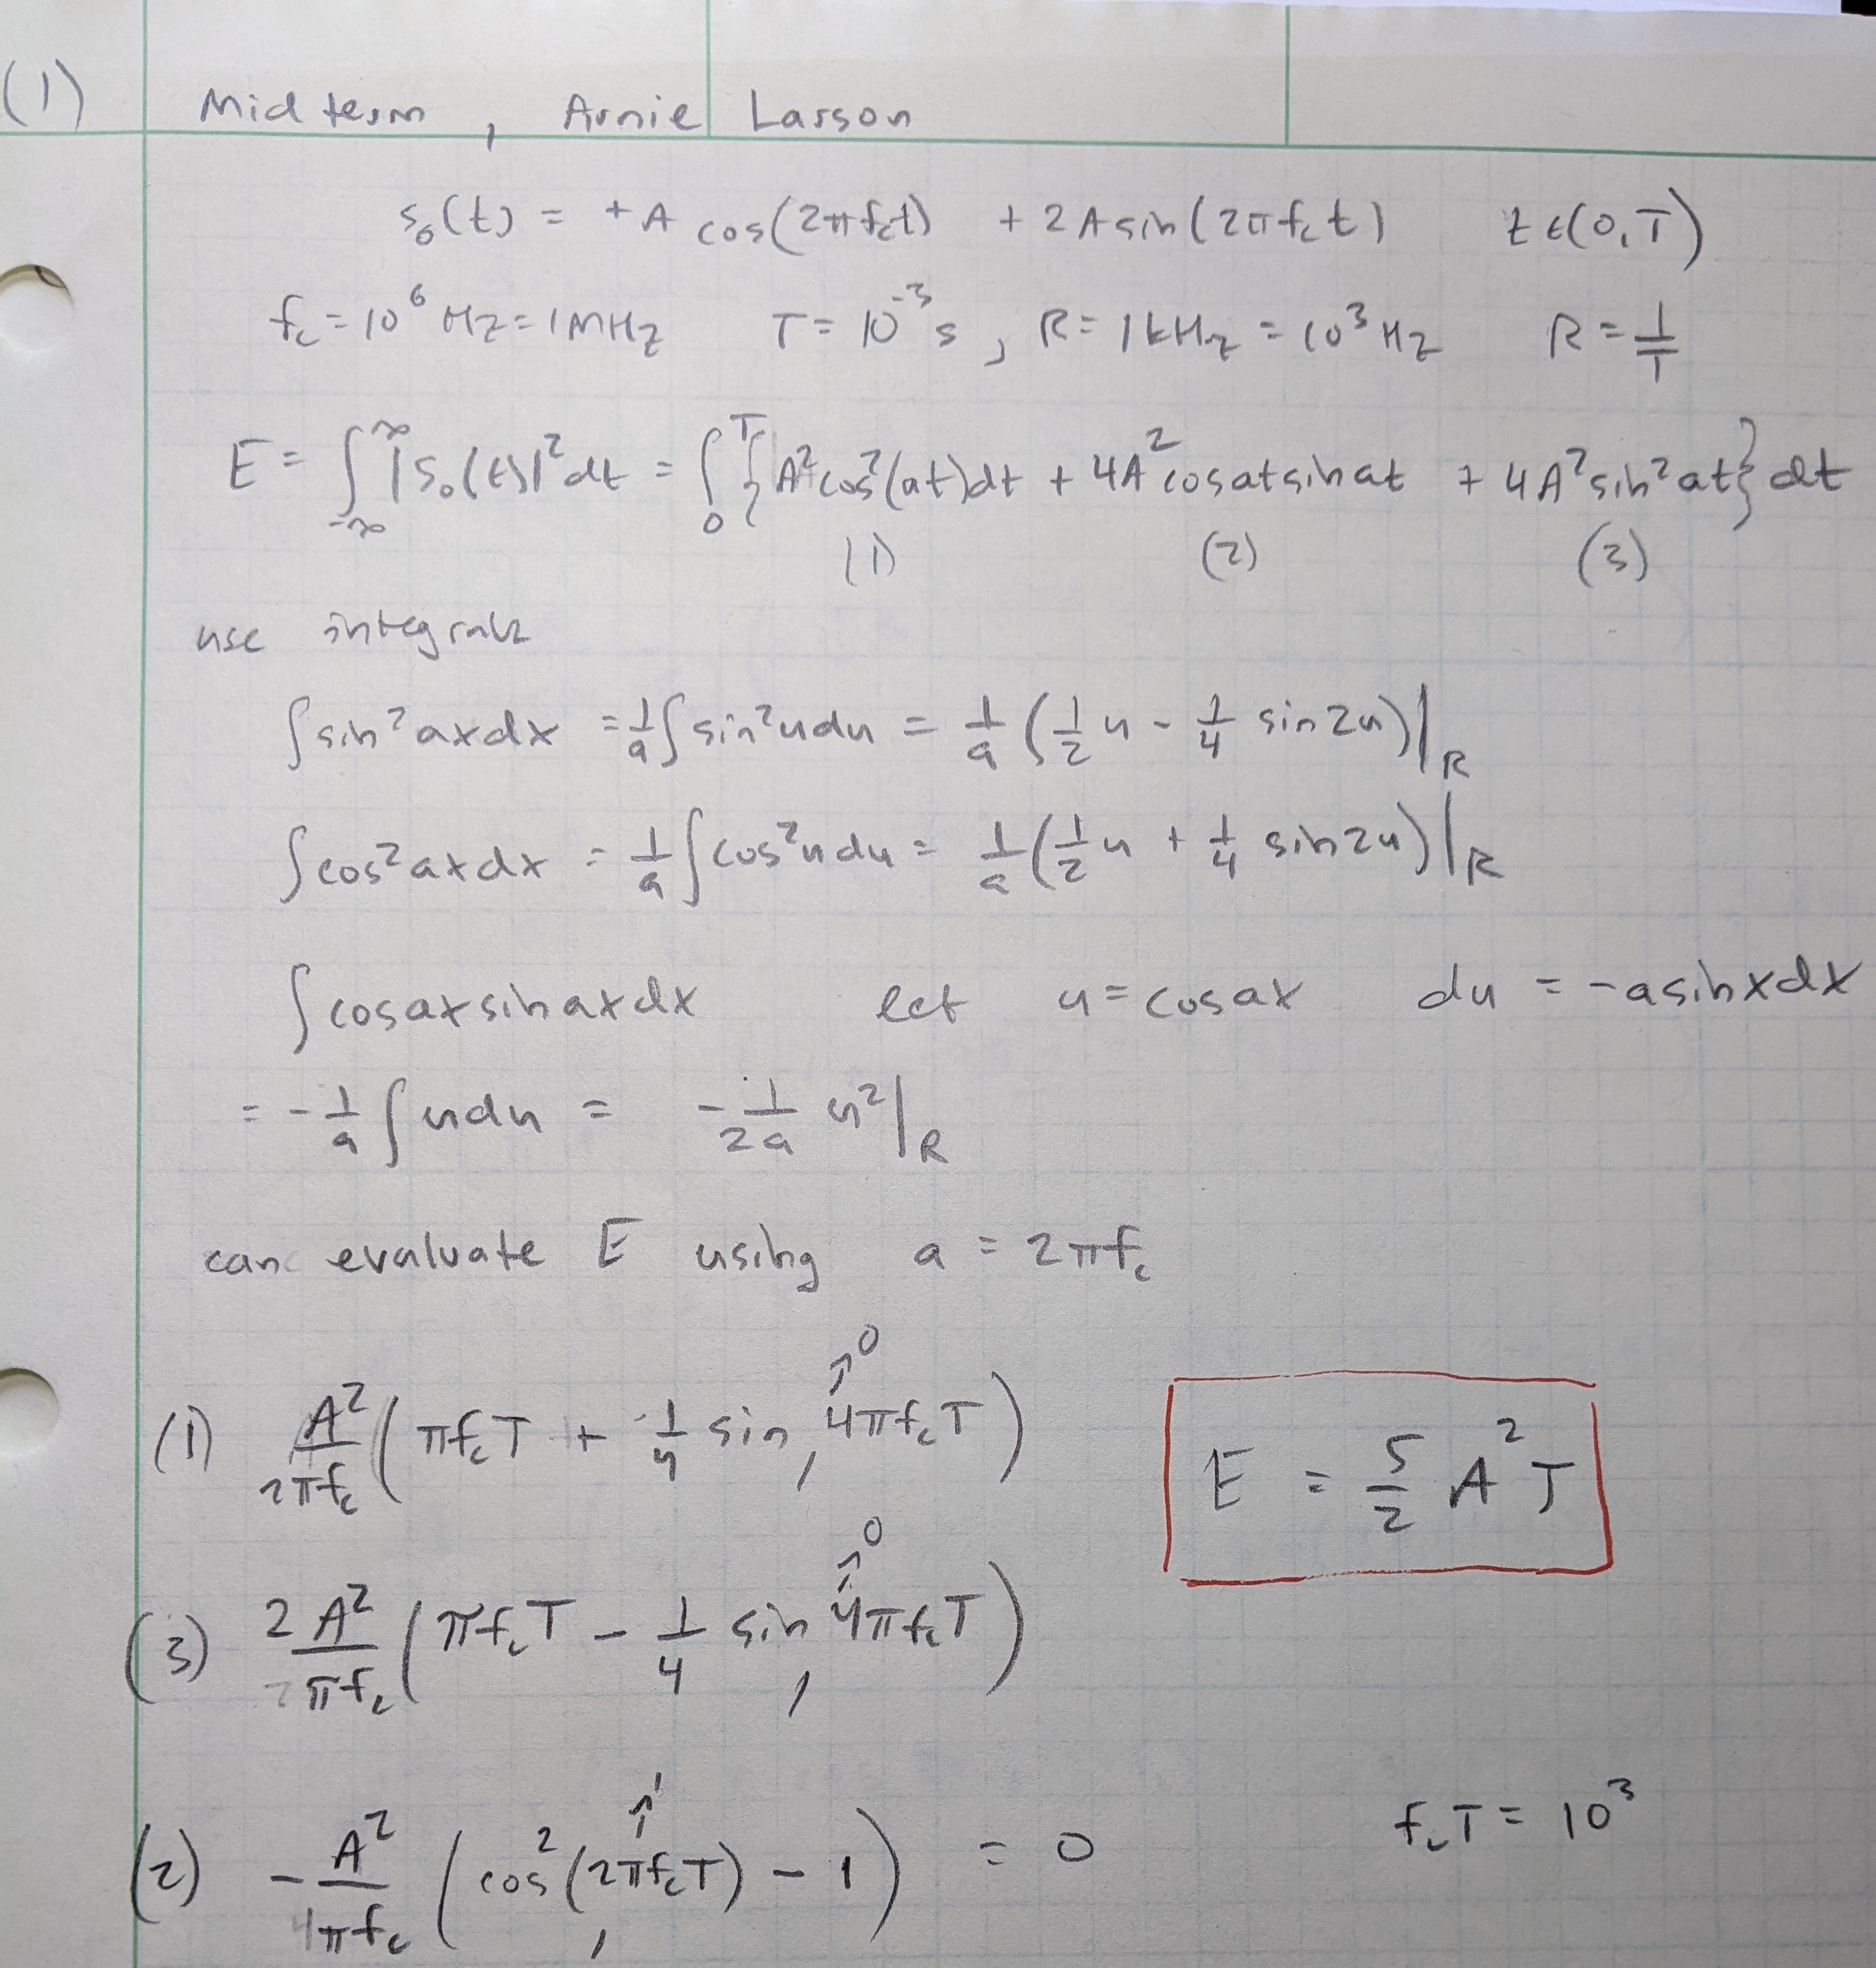 (1) Midterm, Arnie Larson
s₀(t) = +A cos(2πf_c t) + 2A sin(2πf_c t) t ∈ (0,T)
f_c = 10⁶ Hz = 1MHz T = 10⁻³ s, R = 1kHz = 10³ Hz R = 1/T
E = ∫_{-∞}^{∞} |s₀(t)|² dt = ∫₀ᵀ {A² cos²(at)dt + 4A² cos at sin at + 4A² sin² at} dt
(1) (2) (3)
use integrals
∫ sin² ax dx = 1/a ∫ sin² u du = 1/a (1/2 u - 1/4 sin 2u)|_R
∫ cos² ax dx = 1/a ∫ cos² u du = 1/a (1/2 u + 1/4 sin 2u)|_R
∫ cos ax sin ax dx let u = cos ax du = -a sin x dx
= -1/a ∫ u du = -1/2a u²|_R
can evaluate E using a = 2πf_c
(1) A²/2πf_c (πf_c T + 1/4 sin 4πf_c T) ↗0
E = 5/2 A² T
(3) 2A²/πf_c (πf_c T - 1/4 sin 4πf_c T) ↗0
(2) -A²/4πf_c (cos²(2πf_c T) - 1) = 0 ↗1
f_c T = 10³